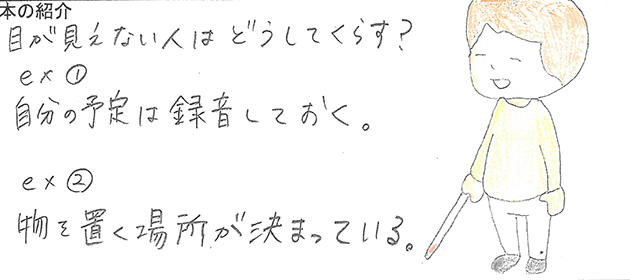 本の紹介
目が見えない人はどうしてくらす?
ex ①
自分の予定は録音しておく。
ex ②
物を置く場所が決まっている。